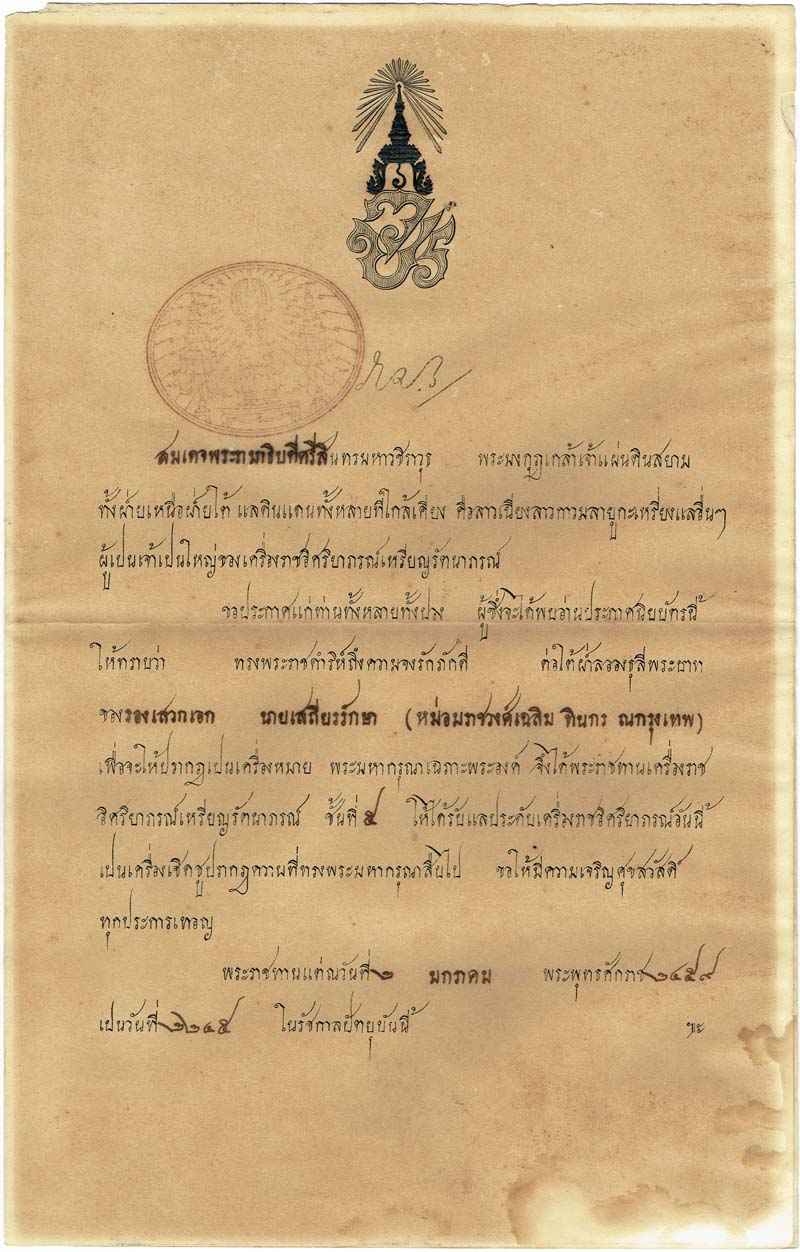 ๖
สมเดจพระรามาธิบดีศรีสินทรมหาวชิราวุธ พระมงกุฎเกล้าเจ้าแผ่นดินสยาม
ทั้งฝ่ายเหนือฝ่ายใต้ แลดินแดนทั้งหลายที่ใกล้เคียง คือลาวเฉียงลาวกาวมลายูกะเหรี่ยงแลอื่นๆ
ผู้เปนเจ้าเปนใหญ่ของเครื่องราชอิศริยาภรณ์เหรียญรัตนาภรณ์
ขอประกาศแก่ท่านทั้งหลายทั้งปวง ผู้ซึ่งจะได้พบอ่านประกาศนิยบัตรนี้
ให้ทราบว่า ทรงพระราชดำริห์ถึงความจงรักภักดี ต่อใต้ฝ่าลอองธุลีพระบาท
ของรองเสวกเอก นายเสถียรรักษา (หม่อมราชวงศ์เฉลิม ทินกร ณกรุงเทพ)
เพื่อจะให้ปรากฎเปนเครื่องหมาย พระมหากรุณาเฉภาะพระองค์ จึ่งได้พระราชทานเครื่องราช
อิศริยาภรณ์เหรียญรัตนาภรณ์ ชั้นที่ ๕ ให้ได้รับแลประดับเครื่องราชอิศริยาภรณ์อันนี้
เปนเครื่องเชิดชูปรากฎความที่ทรงพระมหากรุณาสืบไป ขอให้มีความเจริญศุขสวัสดิ์
ทุกประการเทอญ
พระราชทานแต่ณวันที่ ๒ มกราคม พระพุทธศักราช ๒๔๕๙
เปนวันที่ ๒๒๔๕ ในรัชกาลปัตยุบันนี้ ฯะ